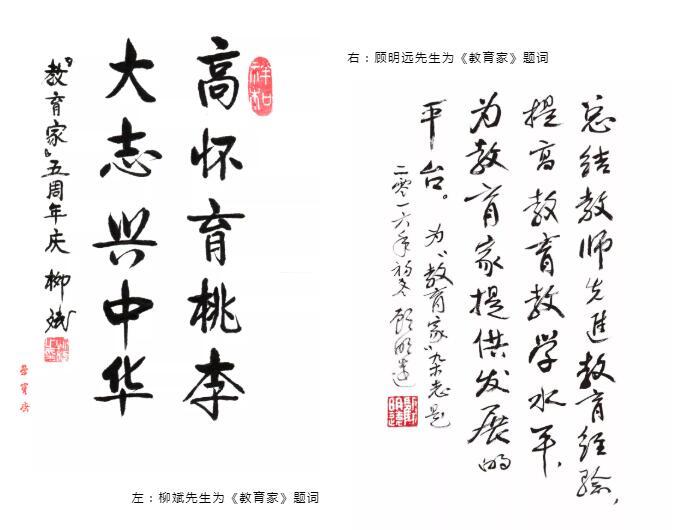 高怀育桃李
大志兴中华
《教育家》五周年庆 柳斌
祥和
荣宝斋
左：柳斌先生为《教育家》题词
右：顾明远先生为《教育家》题词
总结教师先进教育经验，
提高教育教学水平，
为教育家提供发展的
平台。
为《教育家》杂志题
二零一六年初冬 顾明远